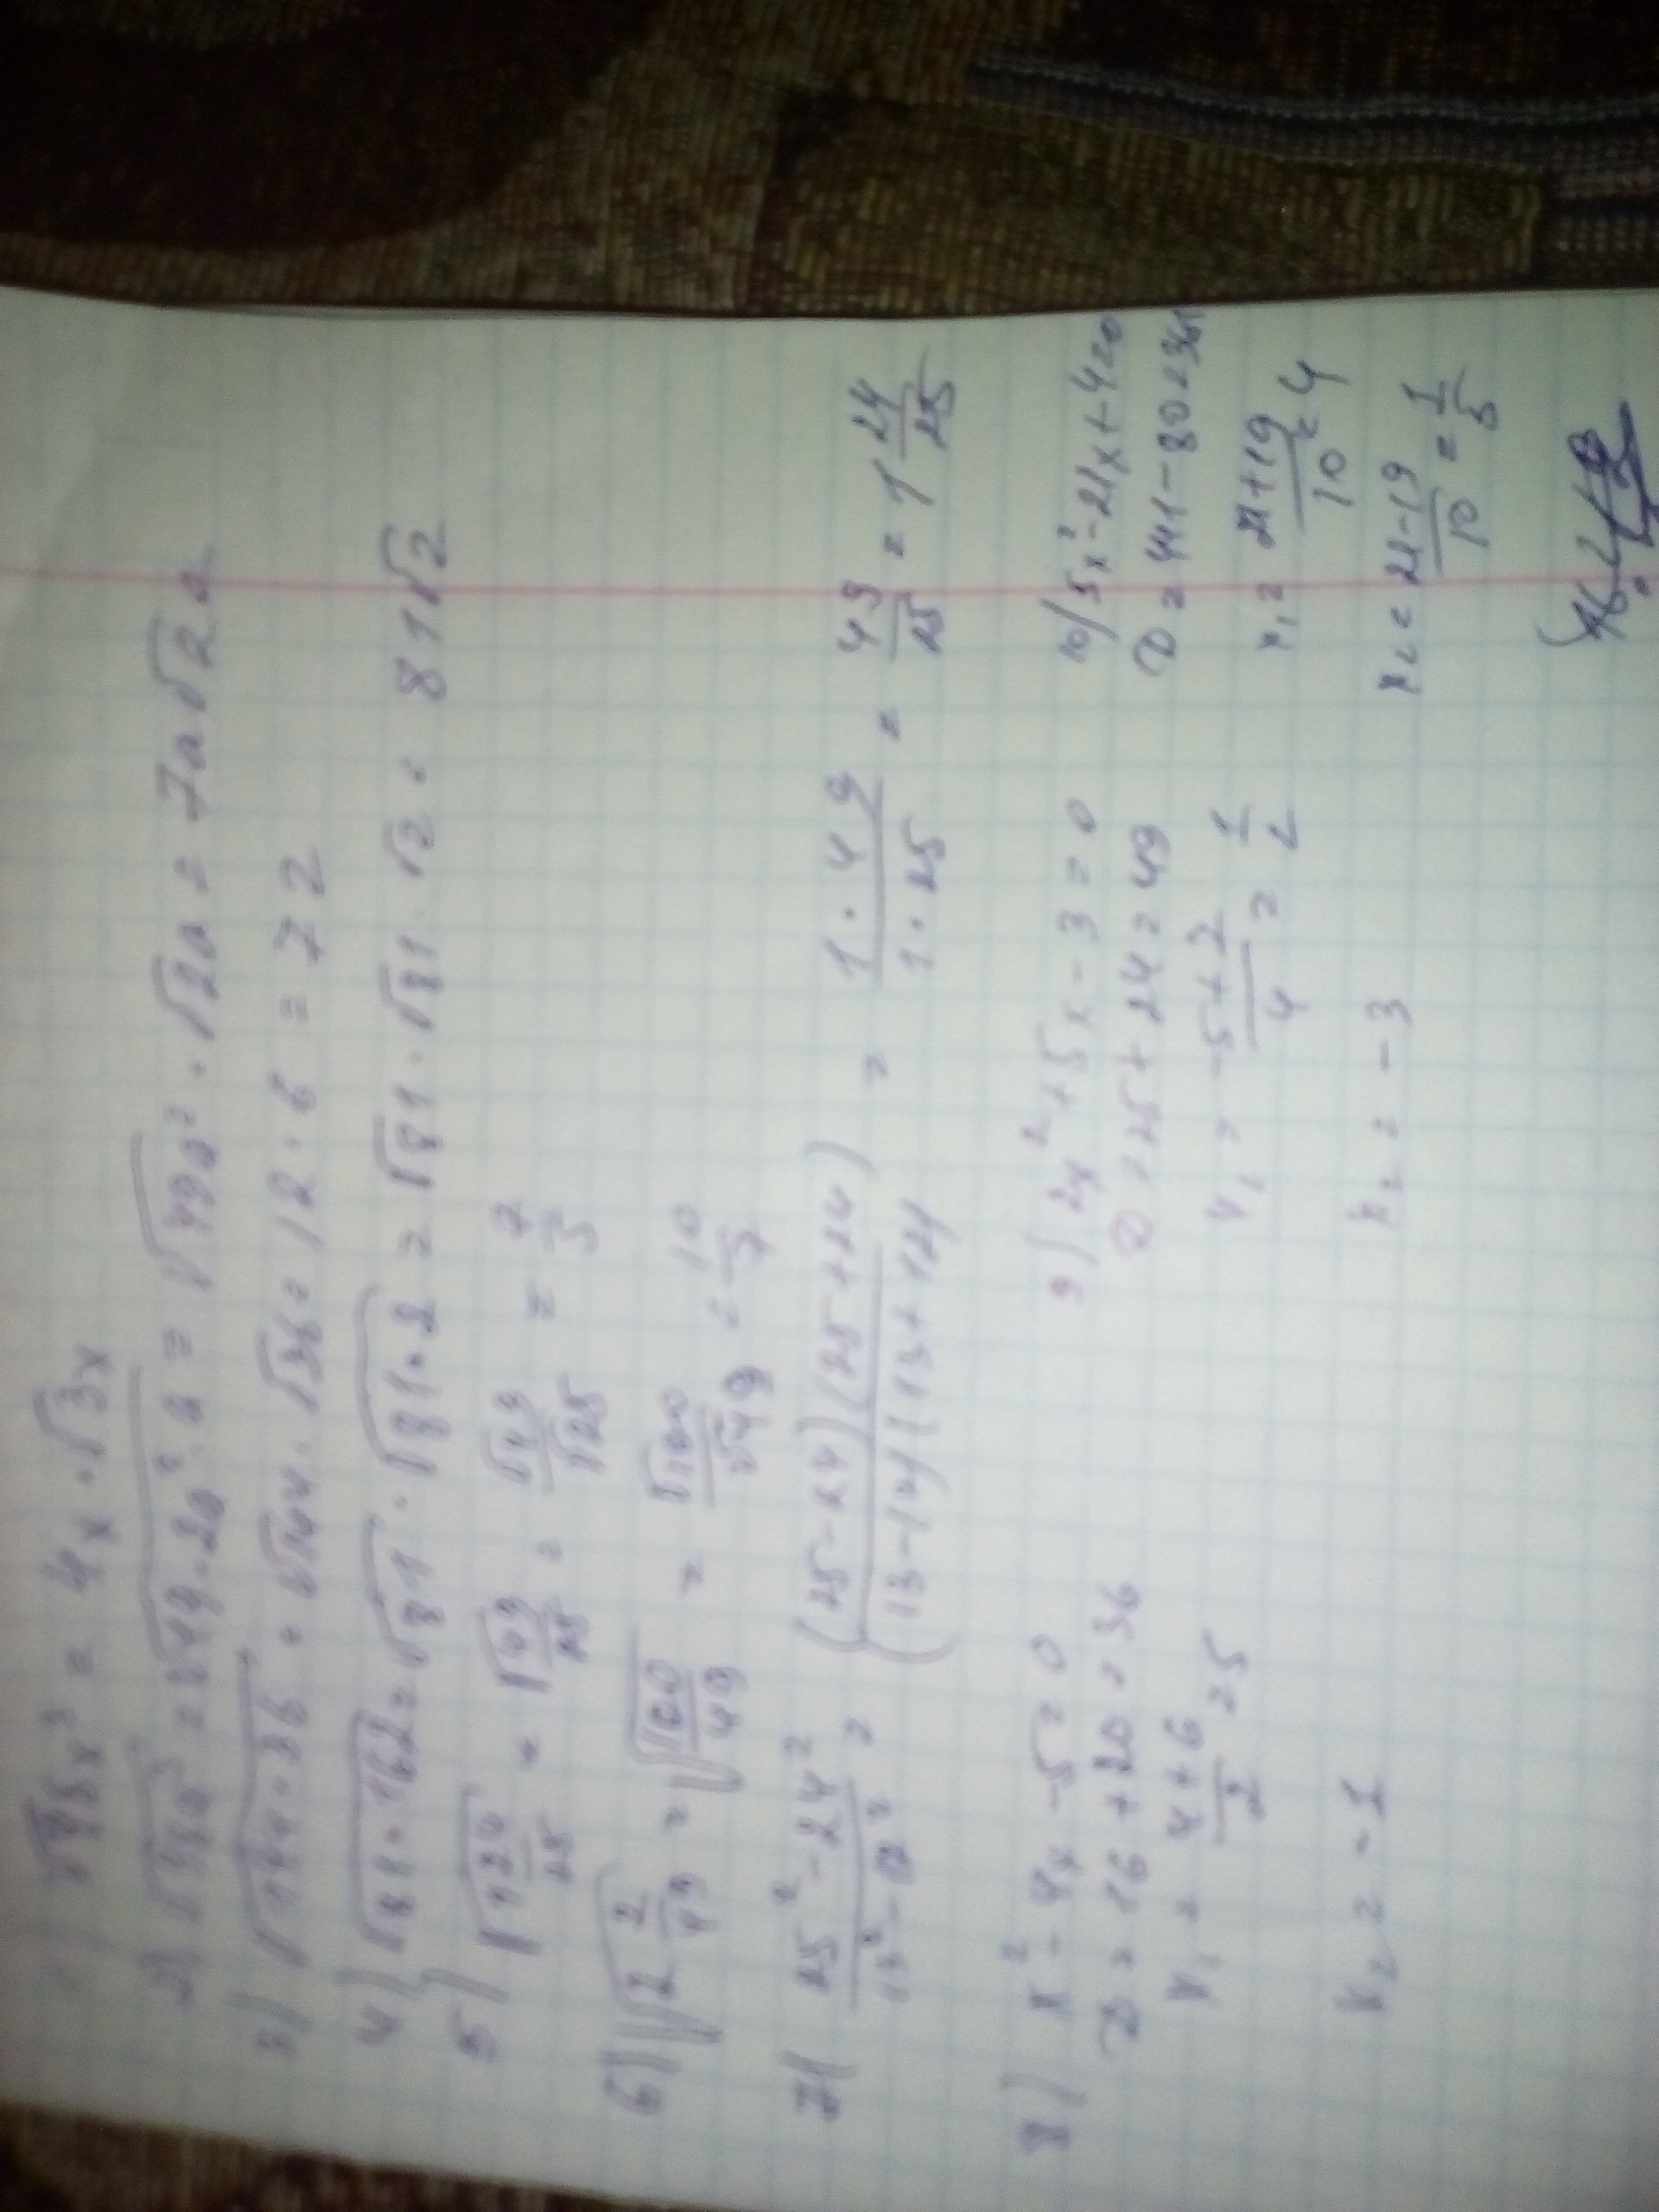 1) √48x³ = 4x · √3x
2) √98a³ = √49 · 2a² · a = √49a² · √2a = 7a√2a
3) √144 · 36 = √144 · √36 = 12 · 6 = 72
4) √81 · 162 = √81 · √81 · 2 = √81 · √81 · √2 = 81√2
5) √1 24/25 = √49/25 = √49/√25 = 7/5
6) √2 2/49 = √100/49 = √100/√49 = 10/7
7) 25² - 24² / 13² - 12² = (25 - 24)(25 + 24) / (13 - 12)(13 + 12) = 1 · 49 / 1 · 25 = 49/25 = 1 24/25
8) x² - 4x - 5 = 0
D = 16 + 20 = 36
x₁ = 4 + 6 / 2 = 5
x₂ = -1
9) 2x² + 5x - 3 = 0
D = 25 + 24 = 49
x₁ = -5 + 7 / 4 = 1/2
x₂ = -3
10) 5x² - 21x + 4 = 0
D = 441 - 80 = 361
x₁ = 21 + 19 / 10 = 4
x₂ = 21 - 19 / 10 = 1/5